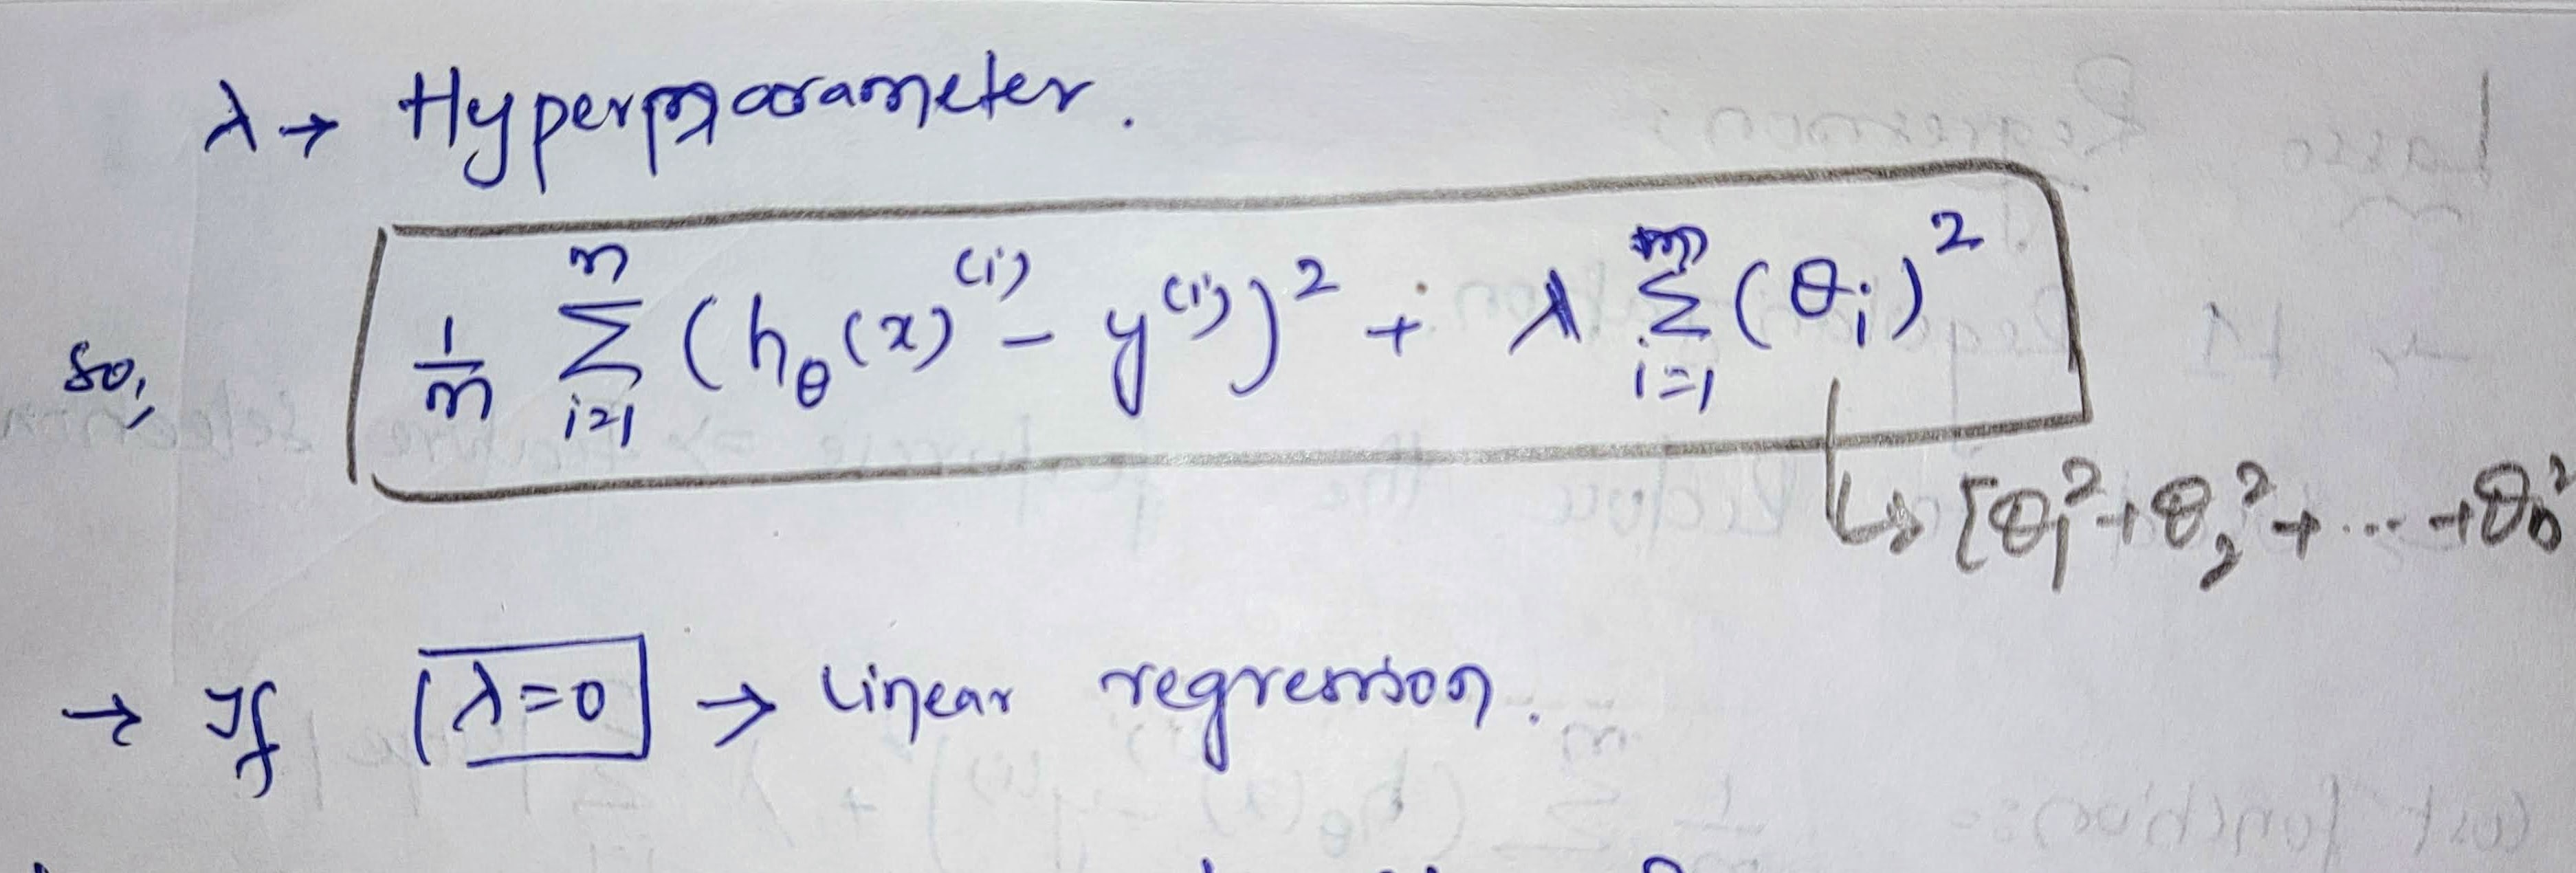 λ → Hyperparameter.
so, 1/m m Σ i=1 (hθ(x)^(i) - y^(i))^2 + λ Σ i=1 (θi)^2
↳ [θ1^2 + θ2^2 + ... + θn^2
→ If λ=0 → Linear regression.